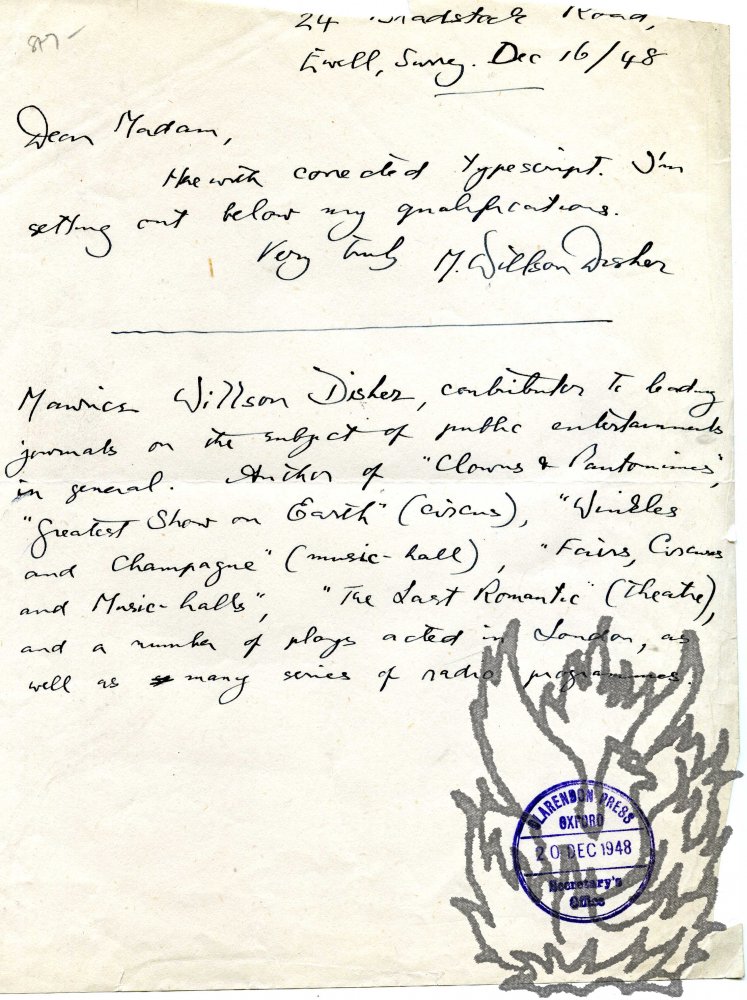 24 Road,
Ewell, Surrey. Dec 16/48
Dear Madam,
Herewith corrected typescript. I'm
setting out below my qualifications.
Very truly M. Willson Disher
Maurice Willson Disher, contributor to leading
journals on the subject of public entertainments
in general. Author of "Clowns & Pantomimes",
"Greatest Show on Earth" (circus), "Winkles
and Champagne" (music-hall), "Fairs, Circuses
and Music-halls", "The Last Romantic" (Theatre),
and a number of plays acted in London, as
well as many series of radio programmes.
CLARENDON PRESS
OXFORD
20 DEC 1948
Secretary's
Office